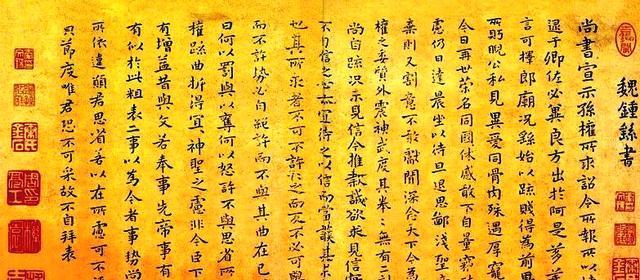 魏鍾繇書
尚書宣示孫權所求詔令所報所以
逮于卿佐必冀良方出於阿是芻蕘
言可擇郎廟況繇始以疏賤得為前恩
所盼睨公私見異愛同骨肉殊遇厚寵
今日再世榮名同國休慼敢不自量竊
慮仍日達晨坐以待旦退思鄙淺聖意
棄則又割意不敢獻聞深念天下今為
權之委質外震神武度其拳拳無有二
尚自疏況未見信今推款誠欲求見信
不自信之心亦宜待之以信而當護其未
也其所求者不可不許許之而反不必可與
而不許勢必自絕許而不與其曲在己
曰何以罰與以奪何以怒許不與思省所
權疏曲折得宜宜神聖之慮非今臣下
有增益昔與文若奉事先帝事有
有似於此粗表二事以為今者事勢尚
所依違願君思省若以在所慮可不
貌節度唯君恐不可采故不自拜表